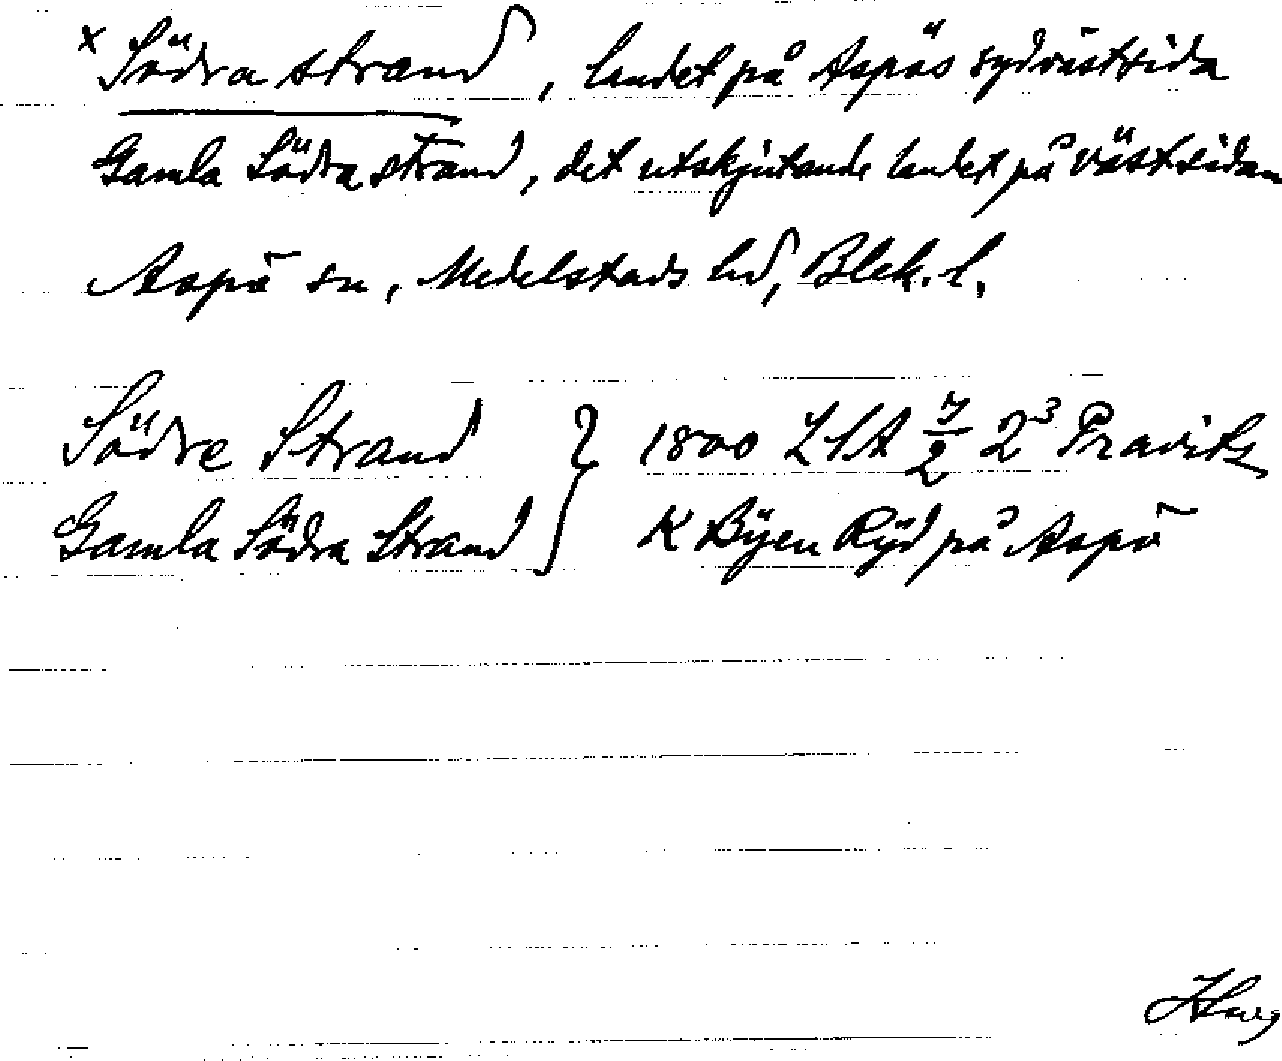 x Södra strand, landet på Aspös sydvästsida
Gamla Södra strand, det utskjutande landet på västsidan
Aspö sn, Medelstads hd, Blek. l.
Södre Strand } 1800 LSA 7/2 2³ Pravits
Gamla Södra Strand } K Byen Ryd på Aspö